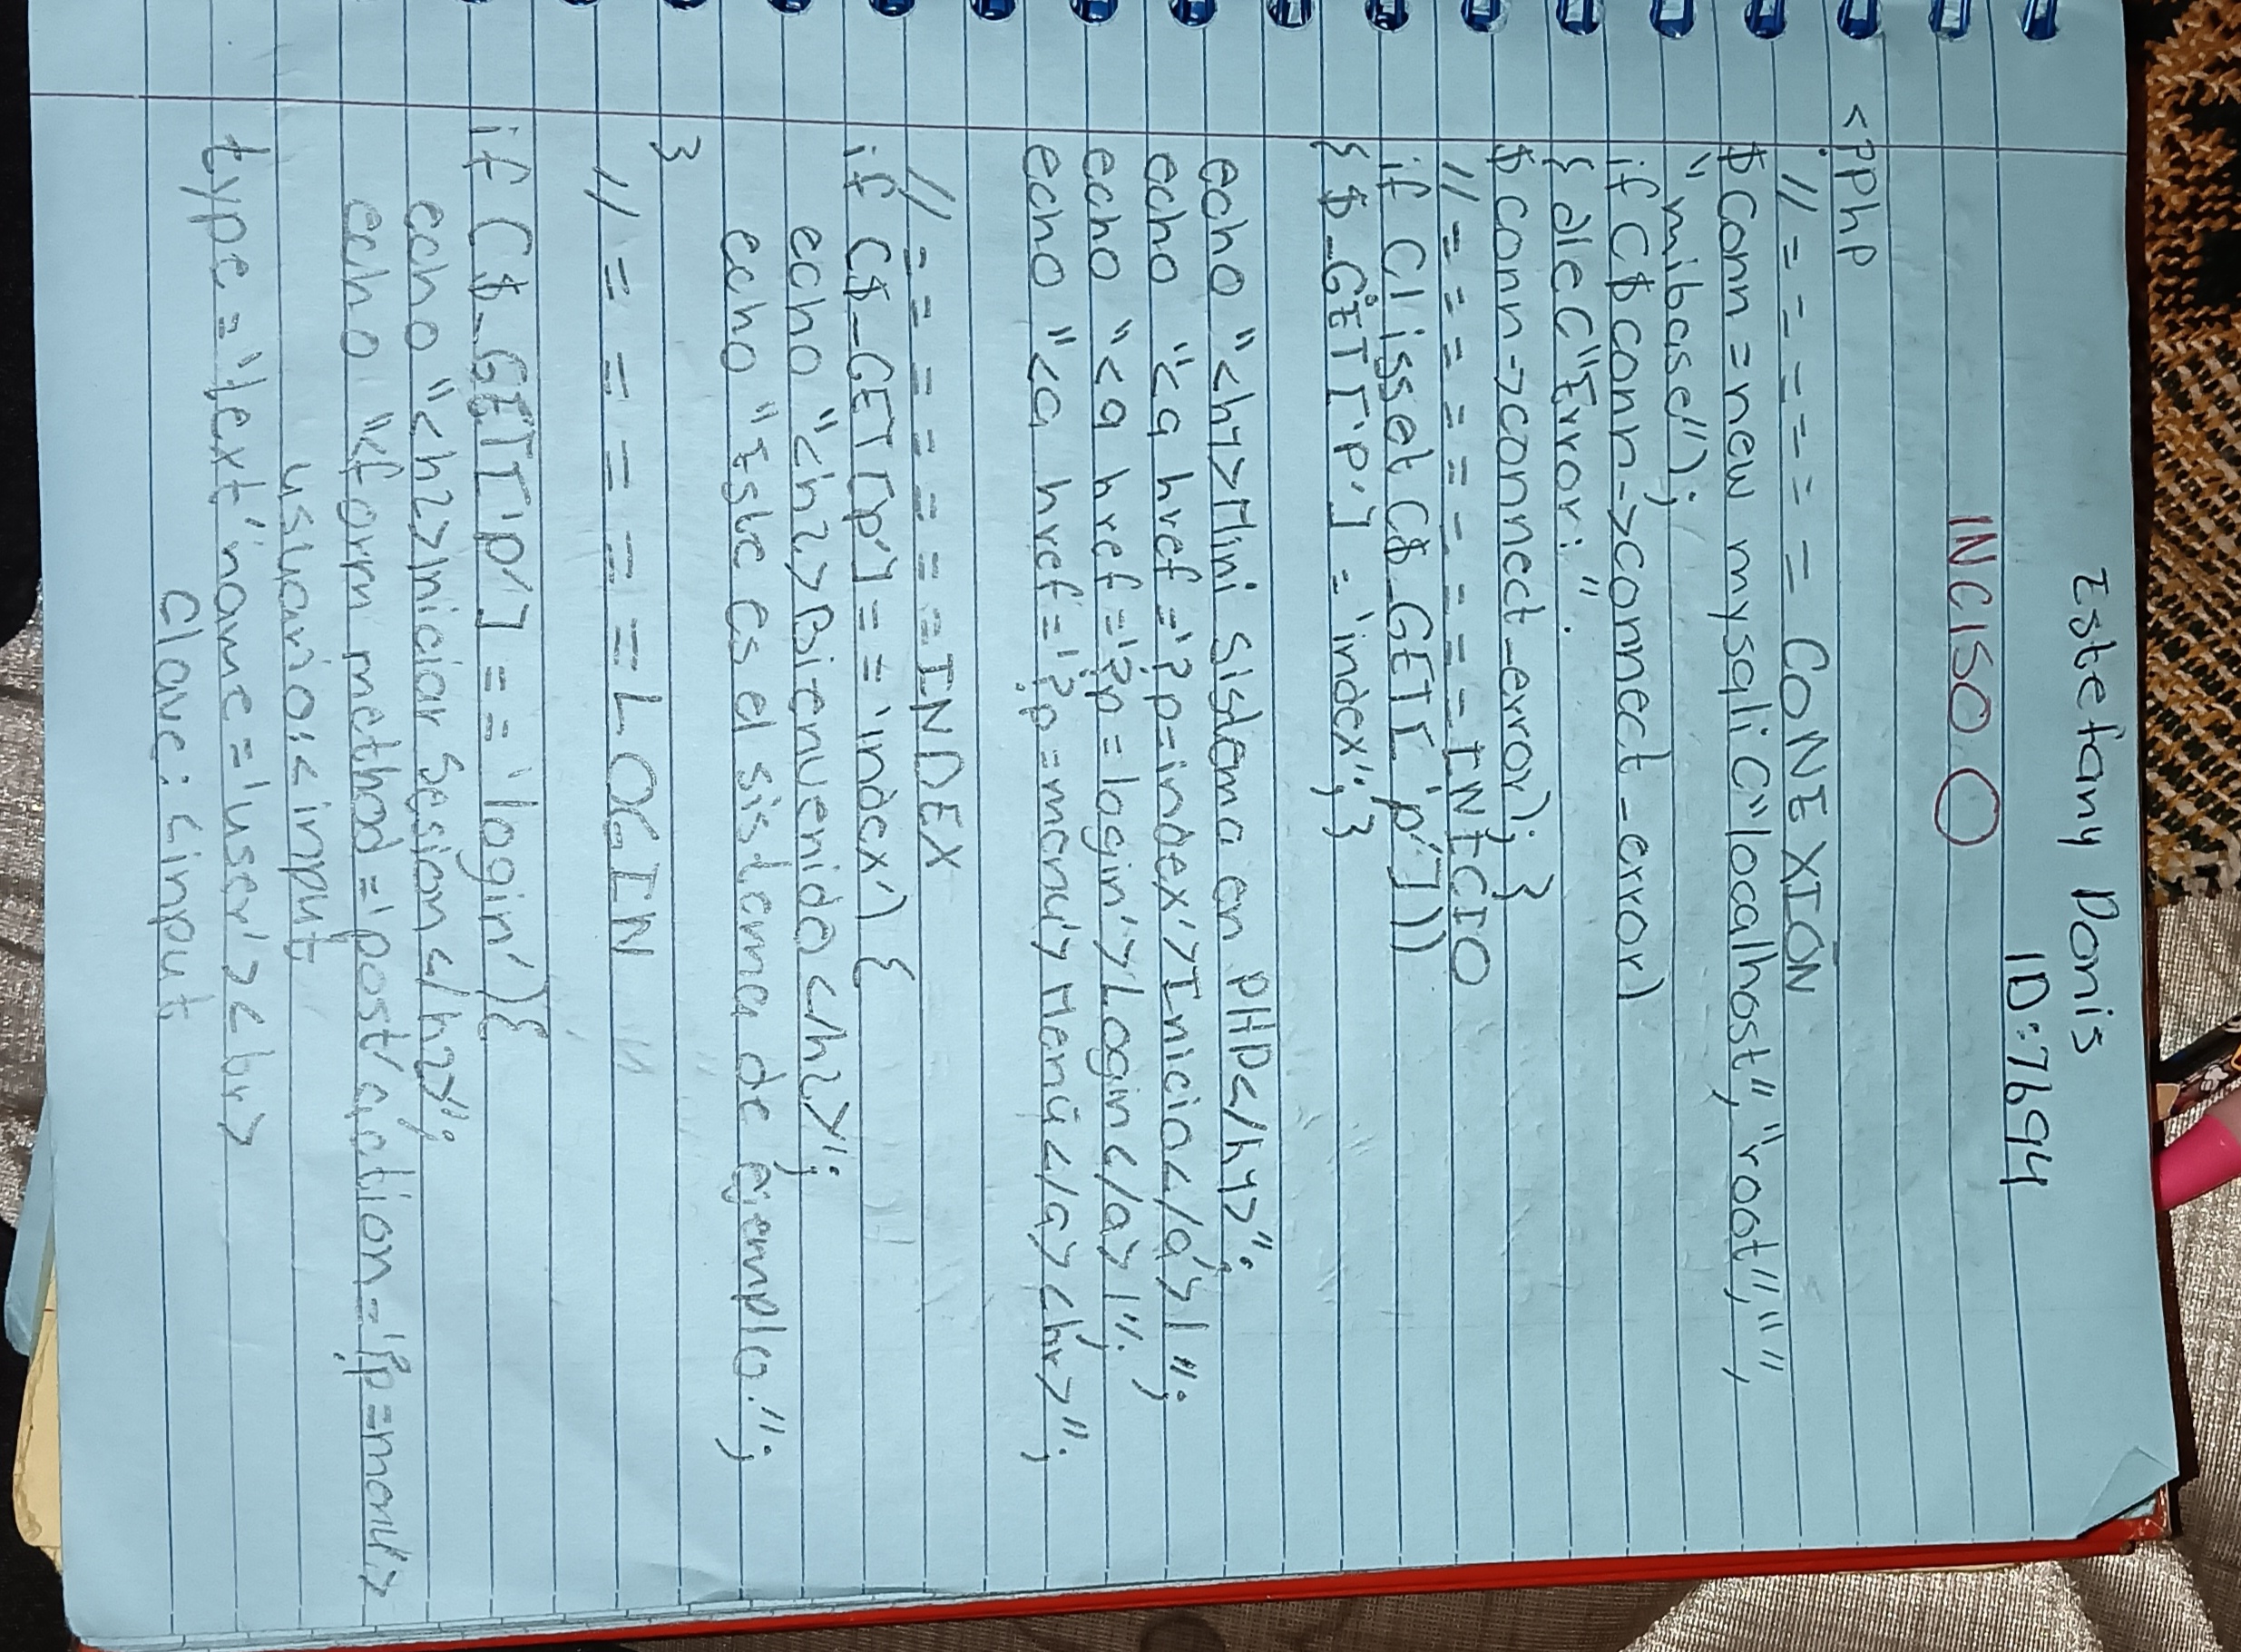 Estefany Donis
ID:7694
INCISO O
<?php
// = = = = = = = CONEXIÓN
$conn = new mysqli("localhost", "root", "",
"mibase");
if ($conn->connect_error)
{ die("Error: ".
$conn->connect_error); }
// = = = = = = = = = = INICIO
if (!isset($_GET['p']))
{ $_GET['p'] = 'index'; }
echo "<h1>Mini Sistema en PHP</h1>";
echo "<a href='?p=index'>Inicio</a> | ";
echo "<a href='?p=login'>Login</a> | ";
echo "<a href='?p=menu'>Menú</a><hr>";
// = = = = = = = = = INDEX
if ($_GET['p'] == 'index') {
echo "<h2>Bienvenido</h2>";
echo "Este es el sistema de ejemplo.";
}
// = = = = = = LOGIN
if ($_GET['p'] == 'login'){
echo "<h2>Iniciar Sesion</h2>";
echo "<form method='post' action='?p=menu'>
usuario:<input
type='text' name='user'><br>
Clave: <input